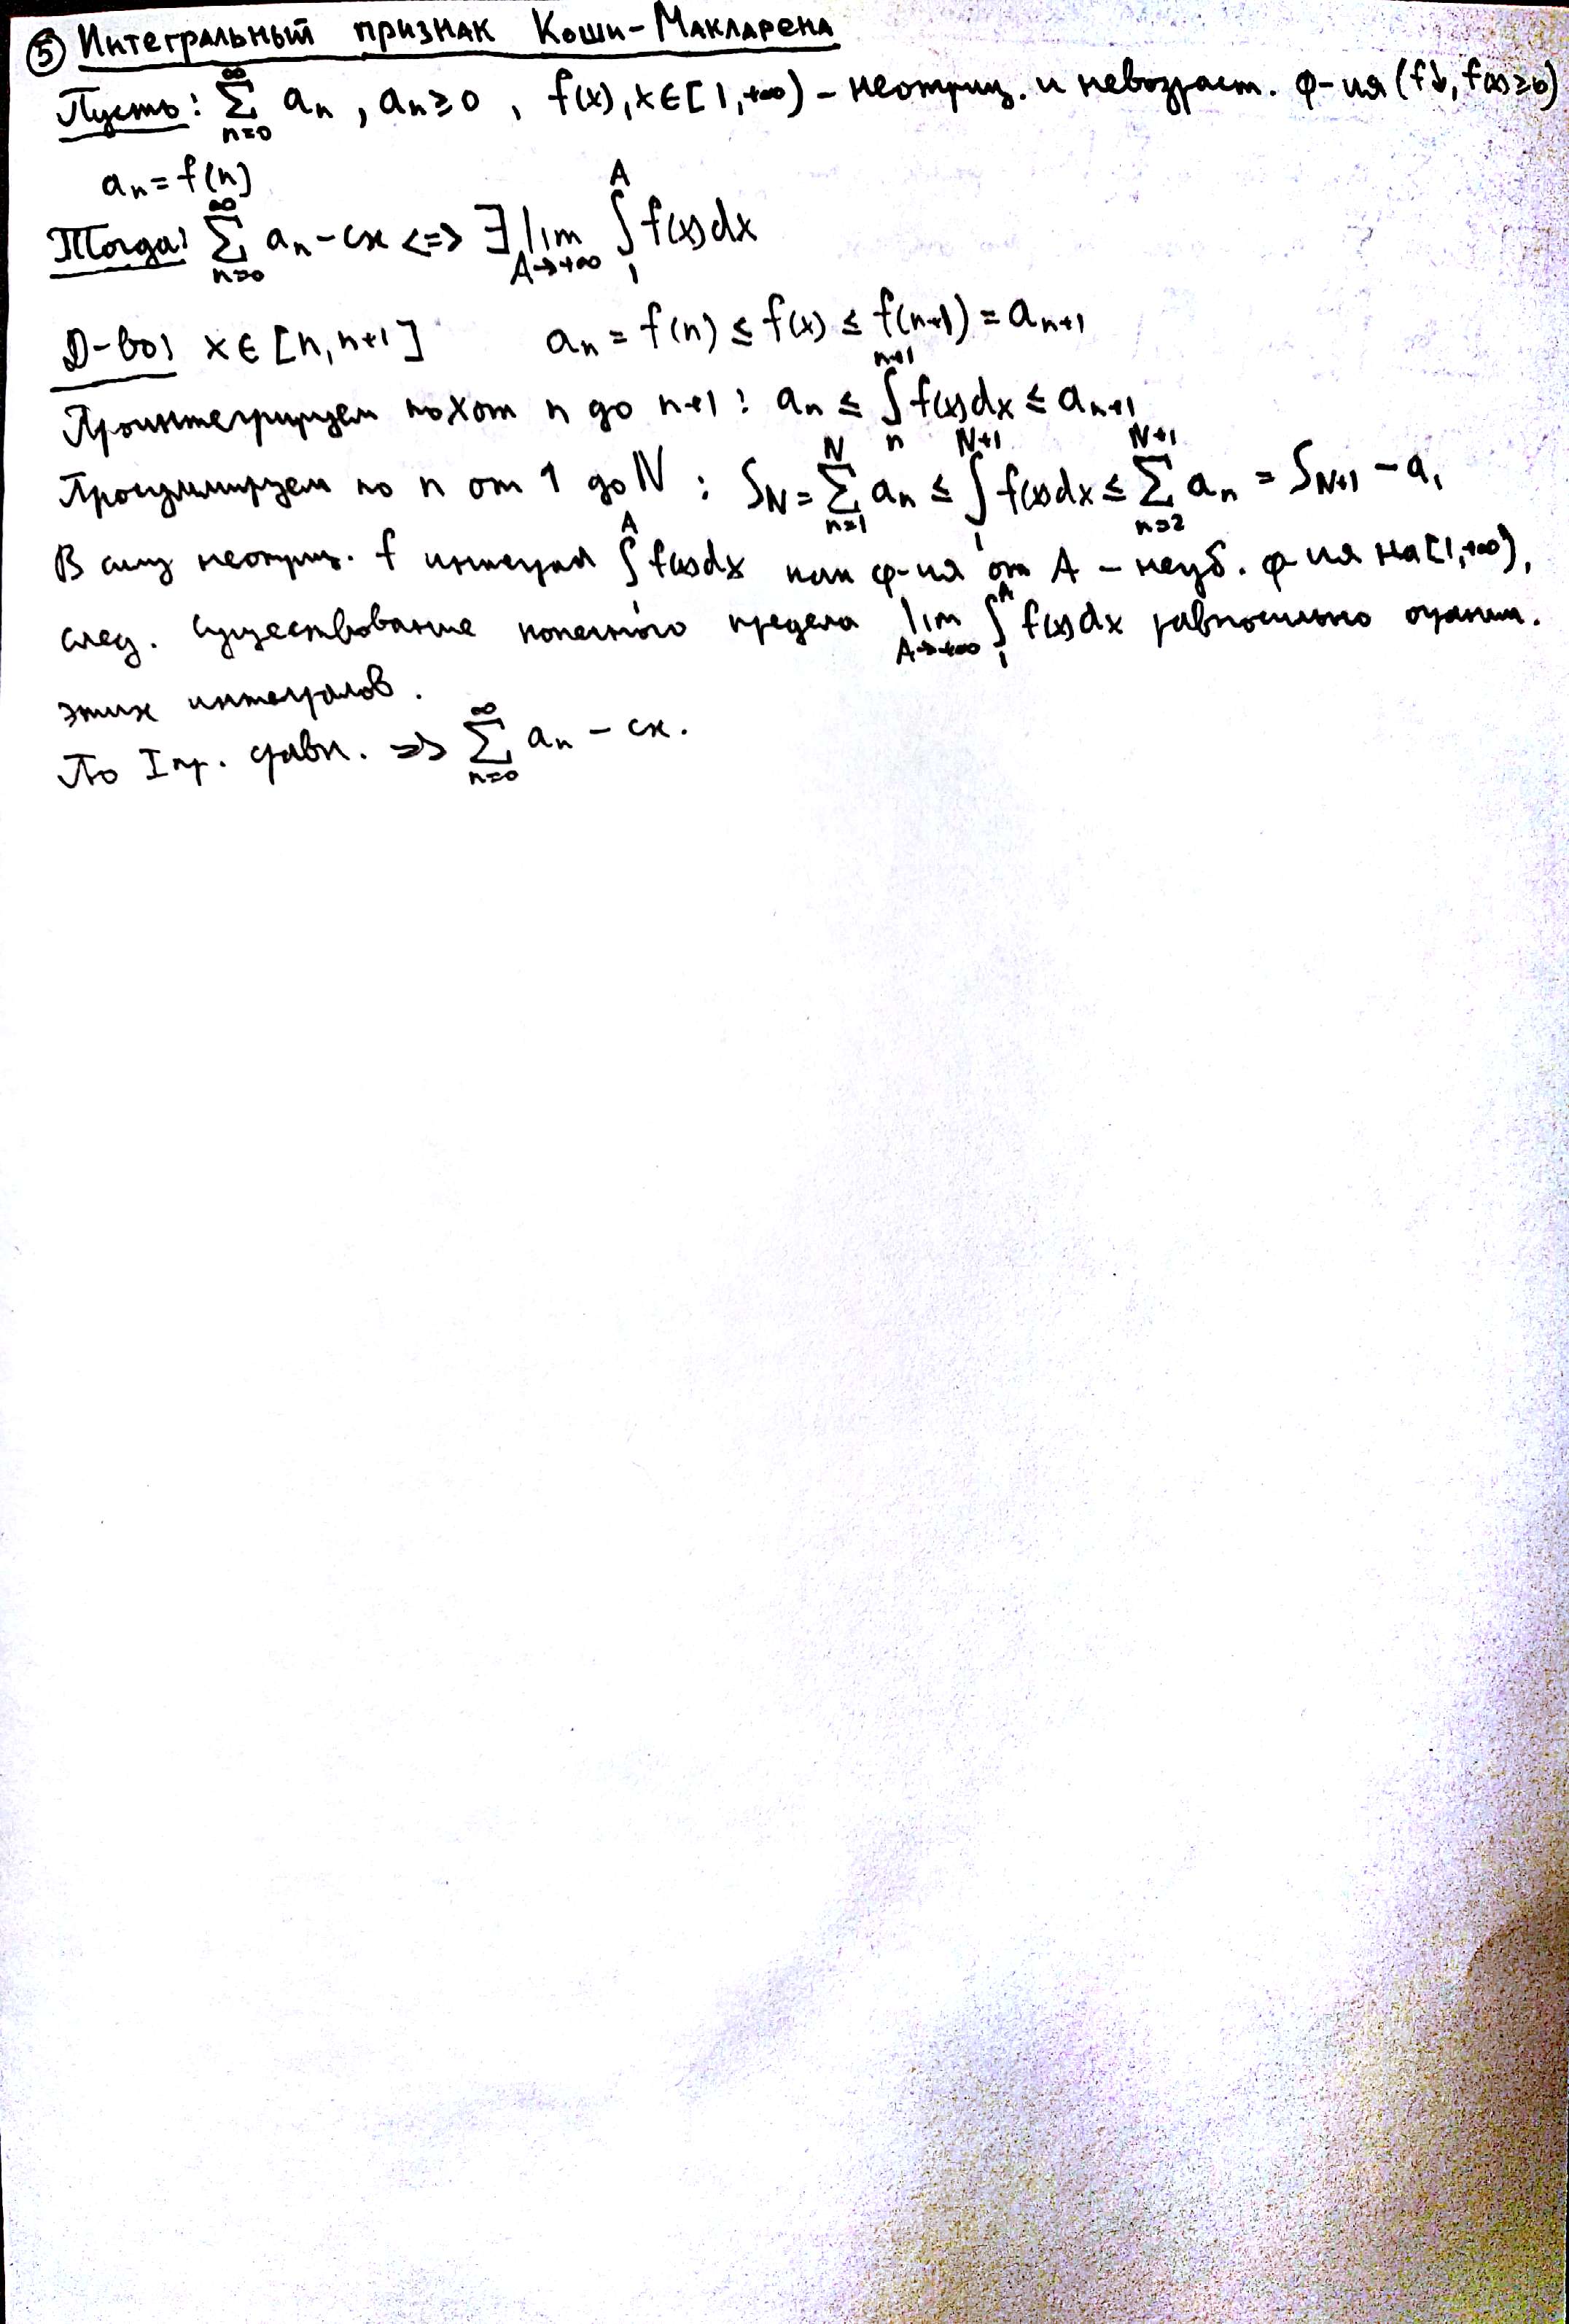 ⑤ Интегральный признак Коши-Макларена
Пусть: ∑_{n=0}^{∞} a_n, a_n ≥ 0, f(x), x ∈ [1, +∞) – неотриц. и невозраст. ф-ия (f↓, f(x) ≥ 0)
a_n = f(n)
Тогда: ∑_{n=0}^{∞} a_n – сх <=> ∃ lim_{A→+∞} ∫_1^A f(x)dx
Д-во: x ∈ [n, n+1] a_n = f(n) ≤ f(x) ≤ f(n+1) = a_{n+1}
Проинтегрируем по x от n до n+1: a_n ≤ ∫_n^{n+1} f(x)dx ≤ a_{n+1}
Просуммируем по n от 1 до N: S_N = ∑_{n=1}^{N} a_n ≤ ∫_1^{N+1} f(x)dx ≤ ∑_{n=2}^{N+1} a_n = S_{N+1} – a_1
В силу неотриц. f интеграл ∫_1^A f(x)dx как ф-ия от A – неуб. ф-ия на [1, +∞),
след. существование конечного предела lim_{A→+∞} ∫_1^A f(x)dx равносильно огранич.
этих интегралов.
По I пр. сравн. => ∑_{n=0}^{∞} a_n – сх.